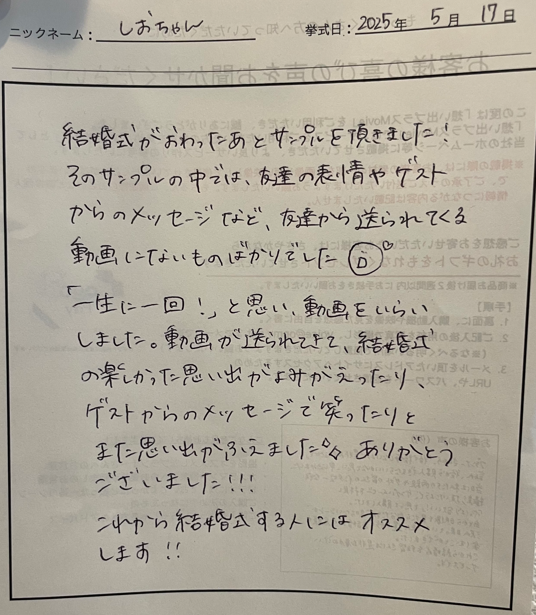 ニックネーム： しおちゃん 挙式日： 2025年 5月 17日
結婚式がおわったあとサンプルを頂きました！
そのサンプルの中では、友達の表情やゲスト
からのメッセージなど、友達から送られてくる
動画にないものばかりでした
「一生に一回！」と思い、動画をいらい
しました。動画が送られてきて、結婚式
の楽しかった思い出がよみがえったり、
ゲストからのメッセージで笑ったりと
また思い出がふえました。 ありがとう
ございました！！！
これから結婚式する人にはオススメ
します！！